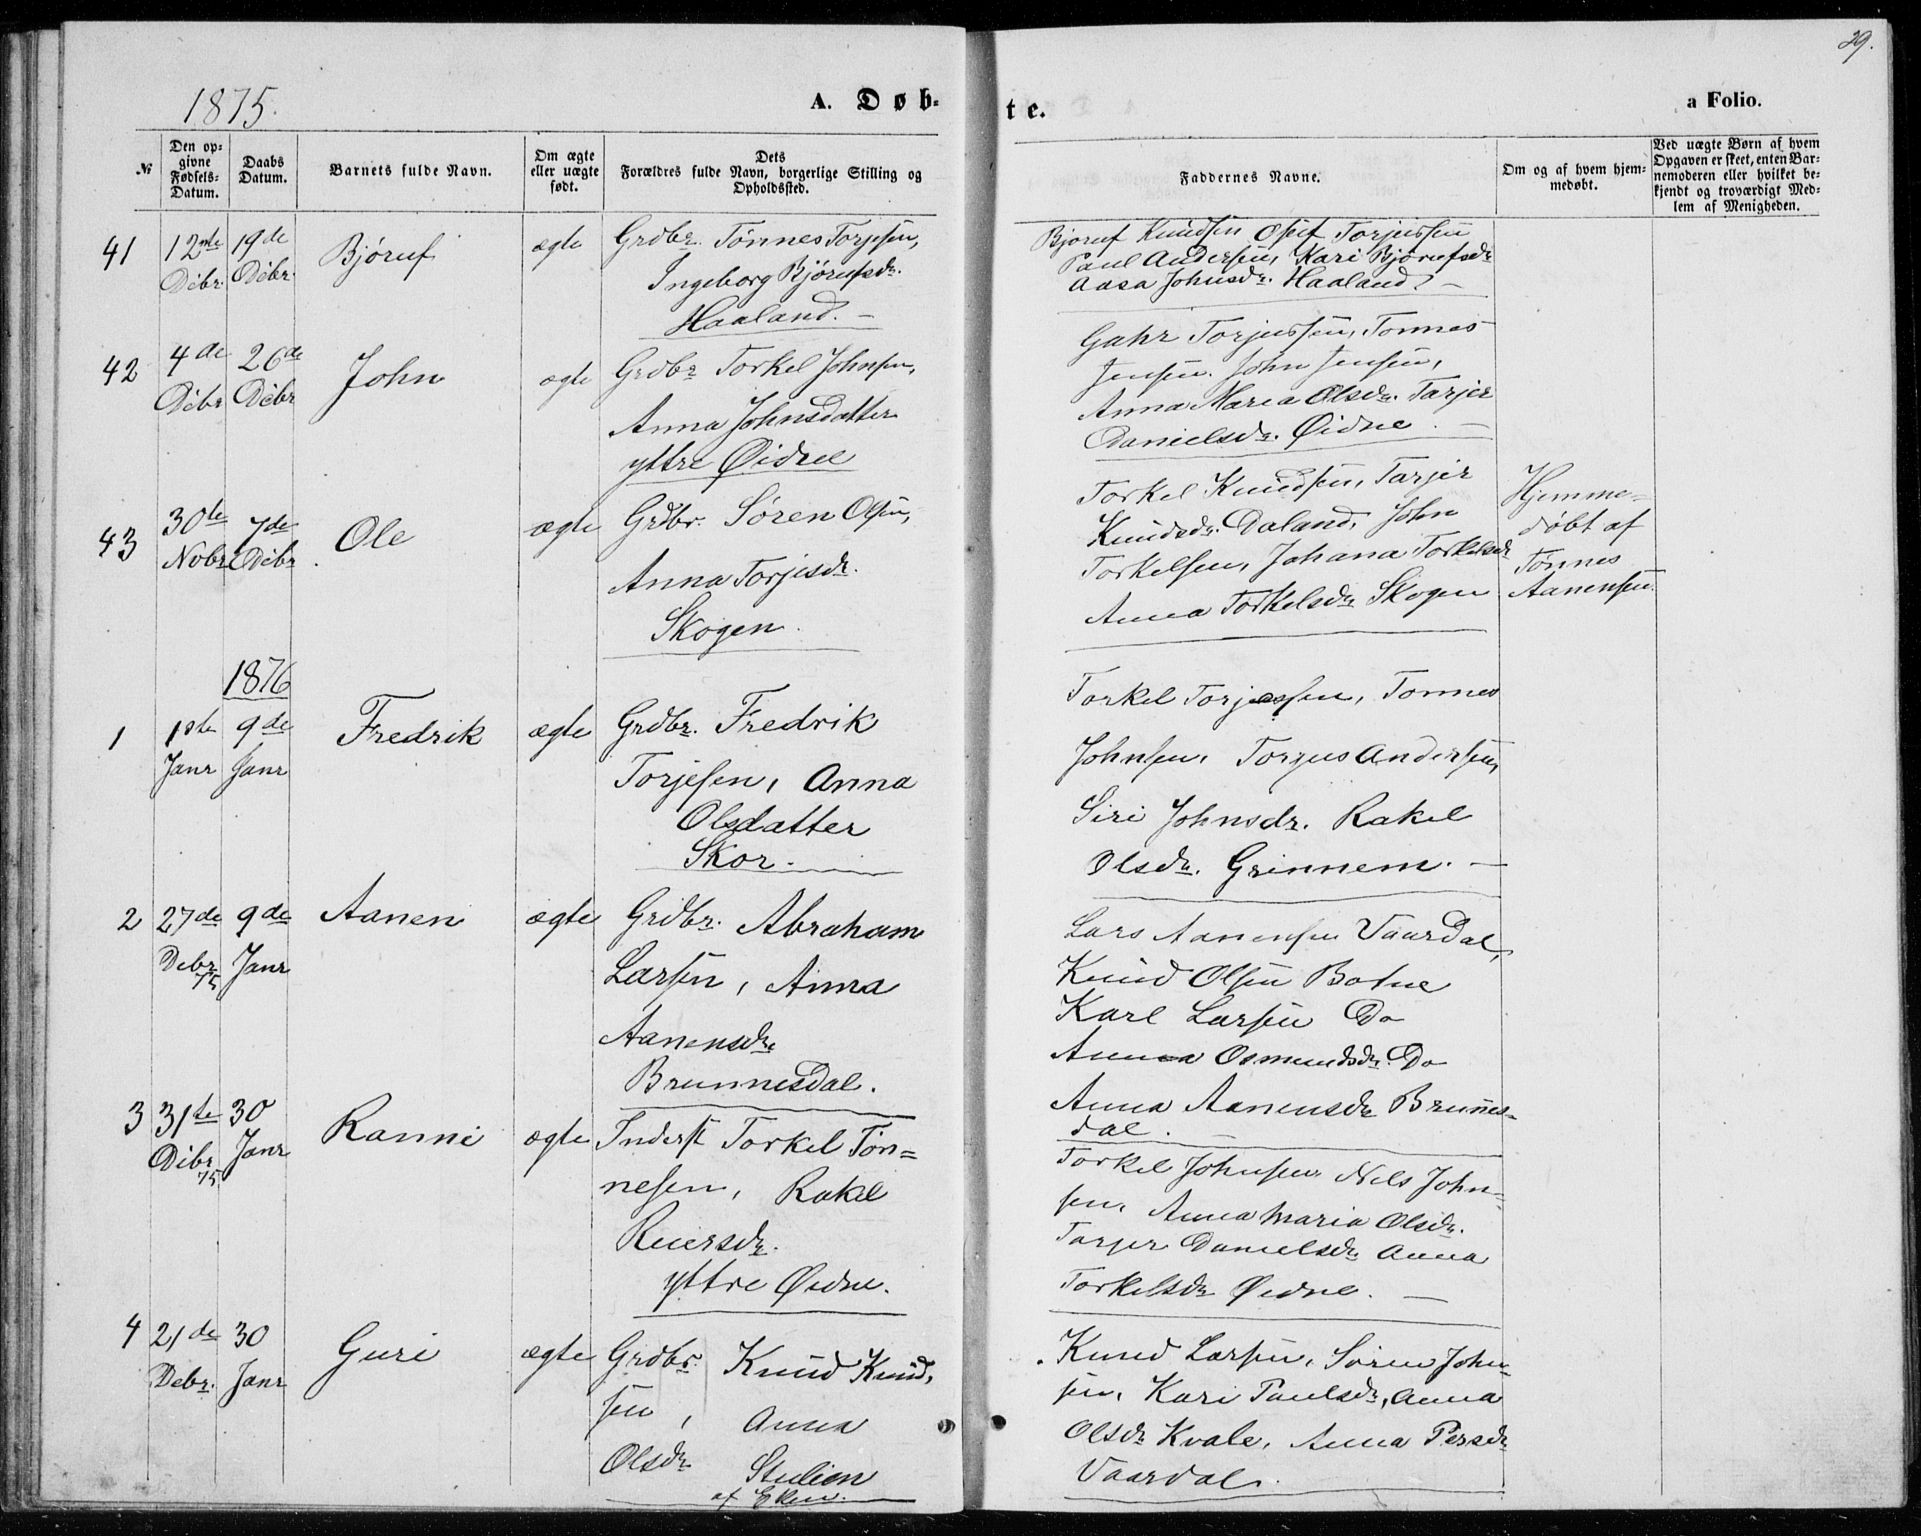 29.
1875.
A. Døb-
te.
a Folio.
№
Den op-
givne
Fødsels-
Datum.
Daabs
Datum.
Barnets fulde Navn.
Om ægte
eller uægte
født.
Dets
Forældres fulde Navn, borgerlige Stilling og
Opholdssted.
Faddernes Navne.
Om og af hvem hjem-
medøbt.
Ved uægte Børn af hvem
Opgaven er skeet, enten Bar-
nemoderen eller hvilket be-
kjendt og troværdigt Med-
lem af Menigheden.
41
12te
Debr.
19de
Debr.
Bjøruf
ægte
Grdbr. Tønnes Torjesen,
Ingeborg Bjørufsdr.
Haaland. –
Bjøruf Knudsen Osuf Torjussen
Paul Andersen, Kari Bjørufsdr
Aasa Johnsdr. Haaland. –
42
4de
Debr
26de
Debr
John
ægte
Grdbr Torkel Johnsen,
Anna Johnsdatter
yttre Øidne
Gahr Torjussen, Tønnes
Jensen. John Jensen,
Anna Maria Olsdr. Tarjer
Danielsdr. Øidne. –
43
30te
Nobr
7de
Debr.
Ole
ægte
Grdbr. Søren Olsen,
Anna Torjisdr.
Skogen.
Torkel Knudsen, Tarjer
Knudsdr. Daland, John
Torkelsen, Johana Torkelsdr
Anna Torkelsdr Skogen
Hjemme-
døbt af
Tønnes
Aanensen.
1876
1
1ste
Janr
9de
Janr
Fredrik
ægte
Grdbr. Fredrik
Torjesen, Anna
Olsdatter
Skor.
Torkel Torjessen, Tønnes
Johnsen, Torjus Andersen,
Siri Johnsdr. Rakel
Olsdr. Grinnem. –
2
27de
Debr
75
9de
Janr
Aanen
ægte
Grdbr. Abraham
Larsen, Anna
Aanensdr
Brunnesdal.
Lars Aanensen Vaardal,
Knud Olsen Botne
Karl Larsen Do
Anna Osmundsdr. Do
Anna Aanensdr Brunes-
dal.
3
31te
Debr
75
30
Janr
Ranni
ægte
Inderst Torkel Tøn-
nesen, Rakel
Reiersdr.
yttre Øidne.
Torkel Johnsen Nels John-
sen, Anna Maria Olsdr.
Tarjer Danielsdr Anna
Torkelsdr Øidne. –
4
21de
Debr.
30
Janr
Guri
ægte
Grdbr. Knud Knud-
sen, Anna
Olsdr Stulien
af Eken.
Knud Larsen, Søren John-
sen, Kari Paulsdr, Anna
Olsdr Kvale, Anna Persdr
Vaardal.